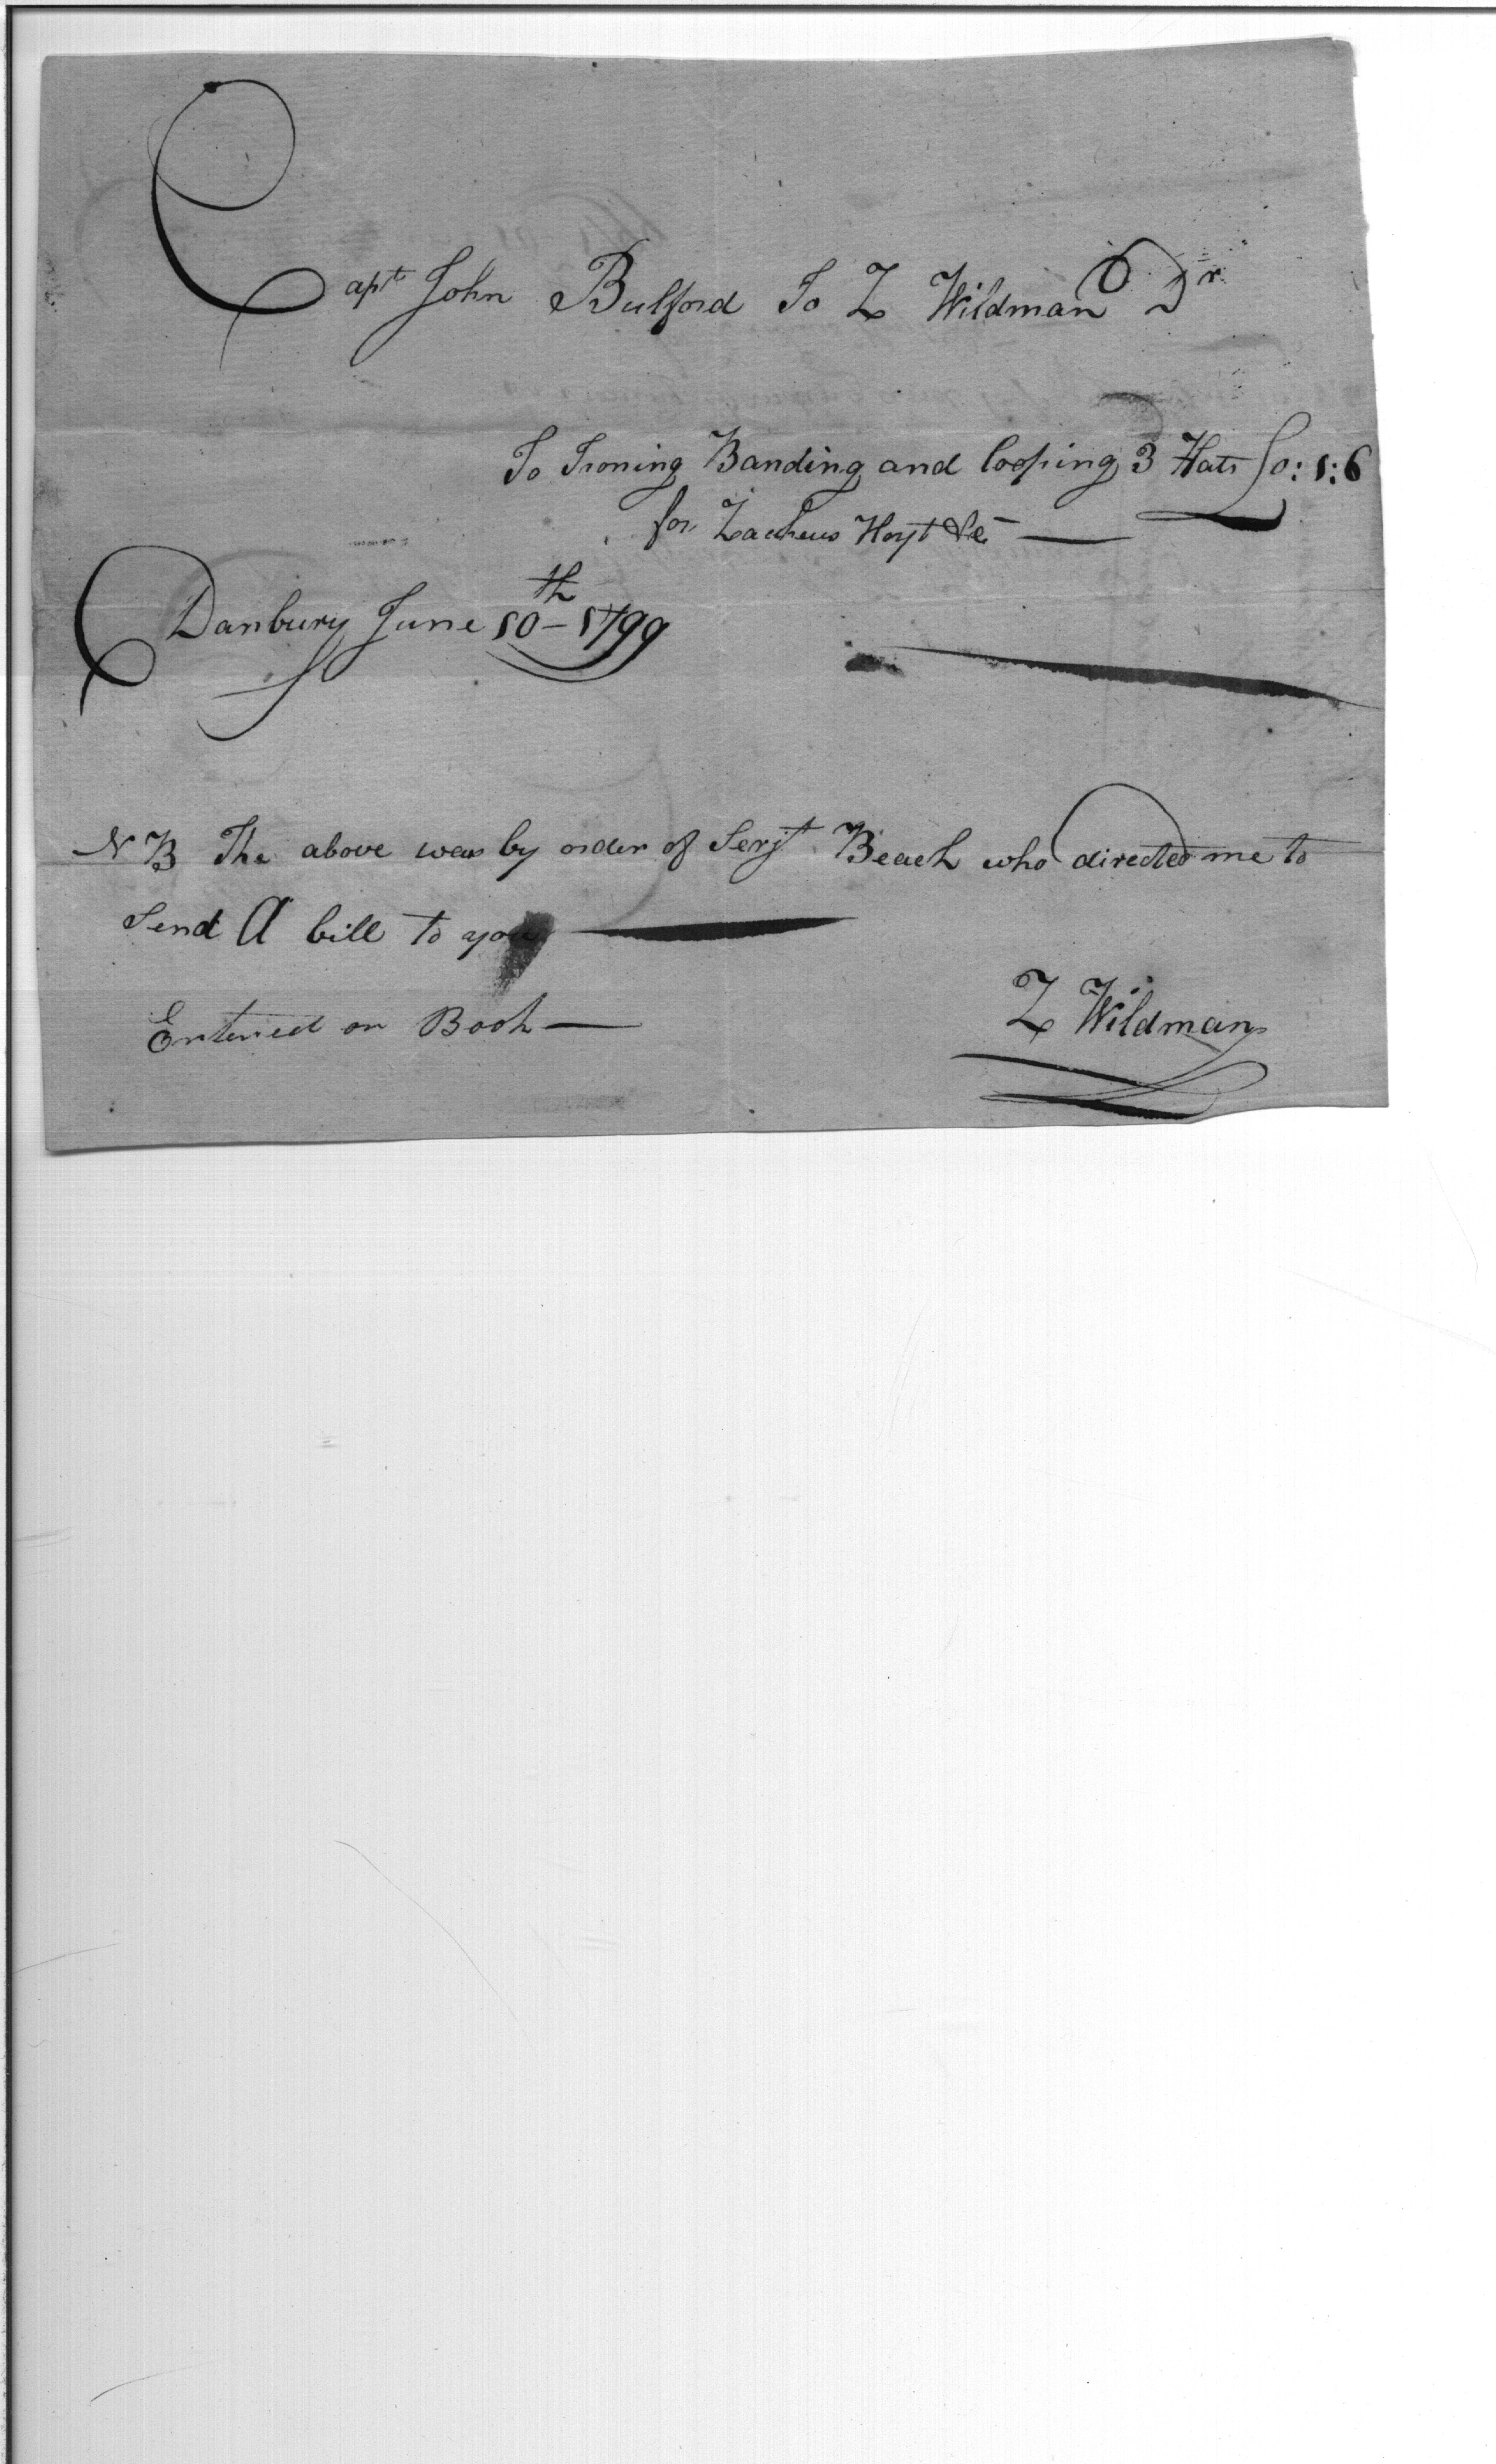 Capt John Bulford To Z Wildman Dr
To Ironing Banding and looping 3 Hats £0:1:6
for Zacheus Hoyt &c
Danbury June 10th 1799
NB The above was by order of Serjt Beach who directed me to
Send A bill to you
Z Wildman
Entered on Book